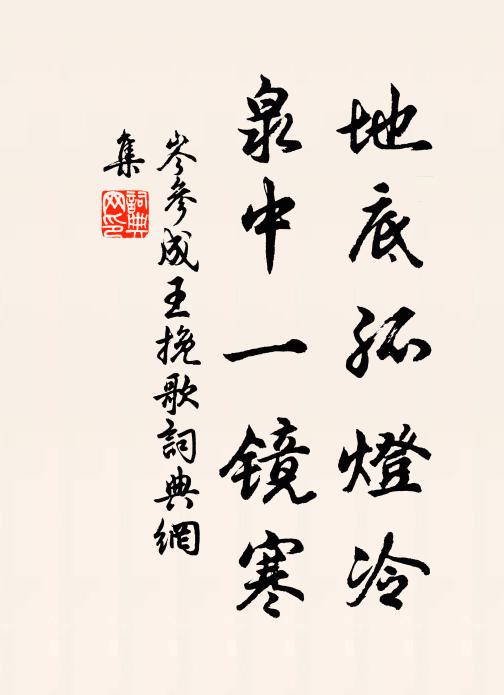 地底孤燈冷
泉中一镜寒
岑參成王挽歌詞典網
集
詞典
网印